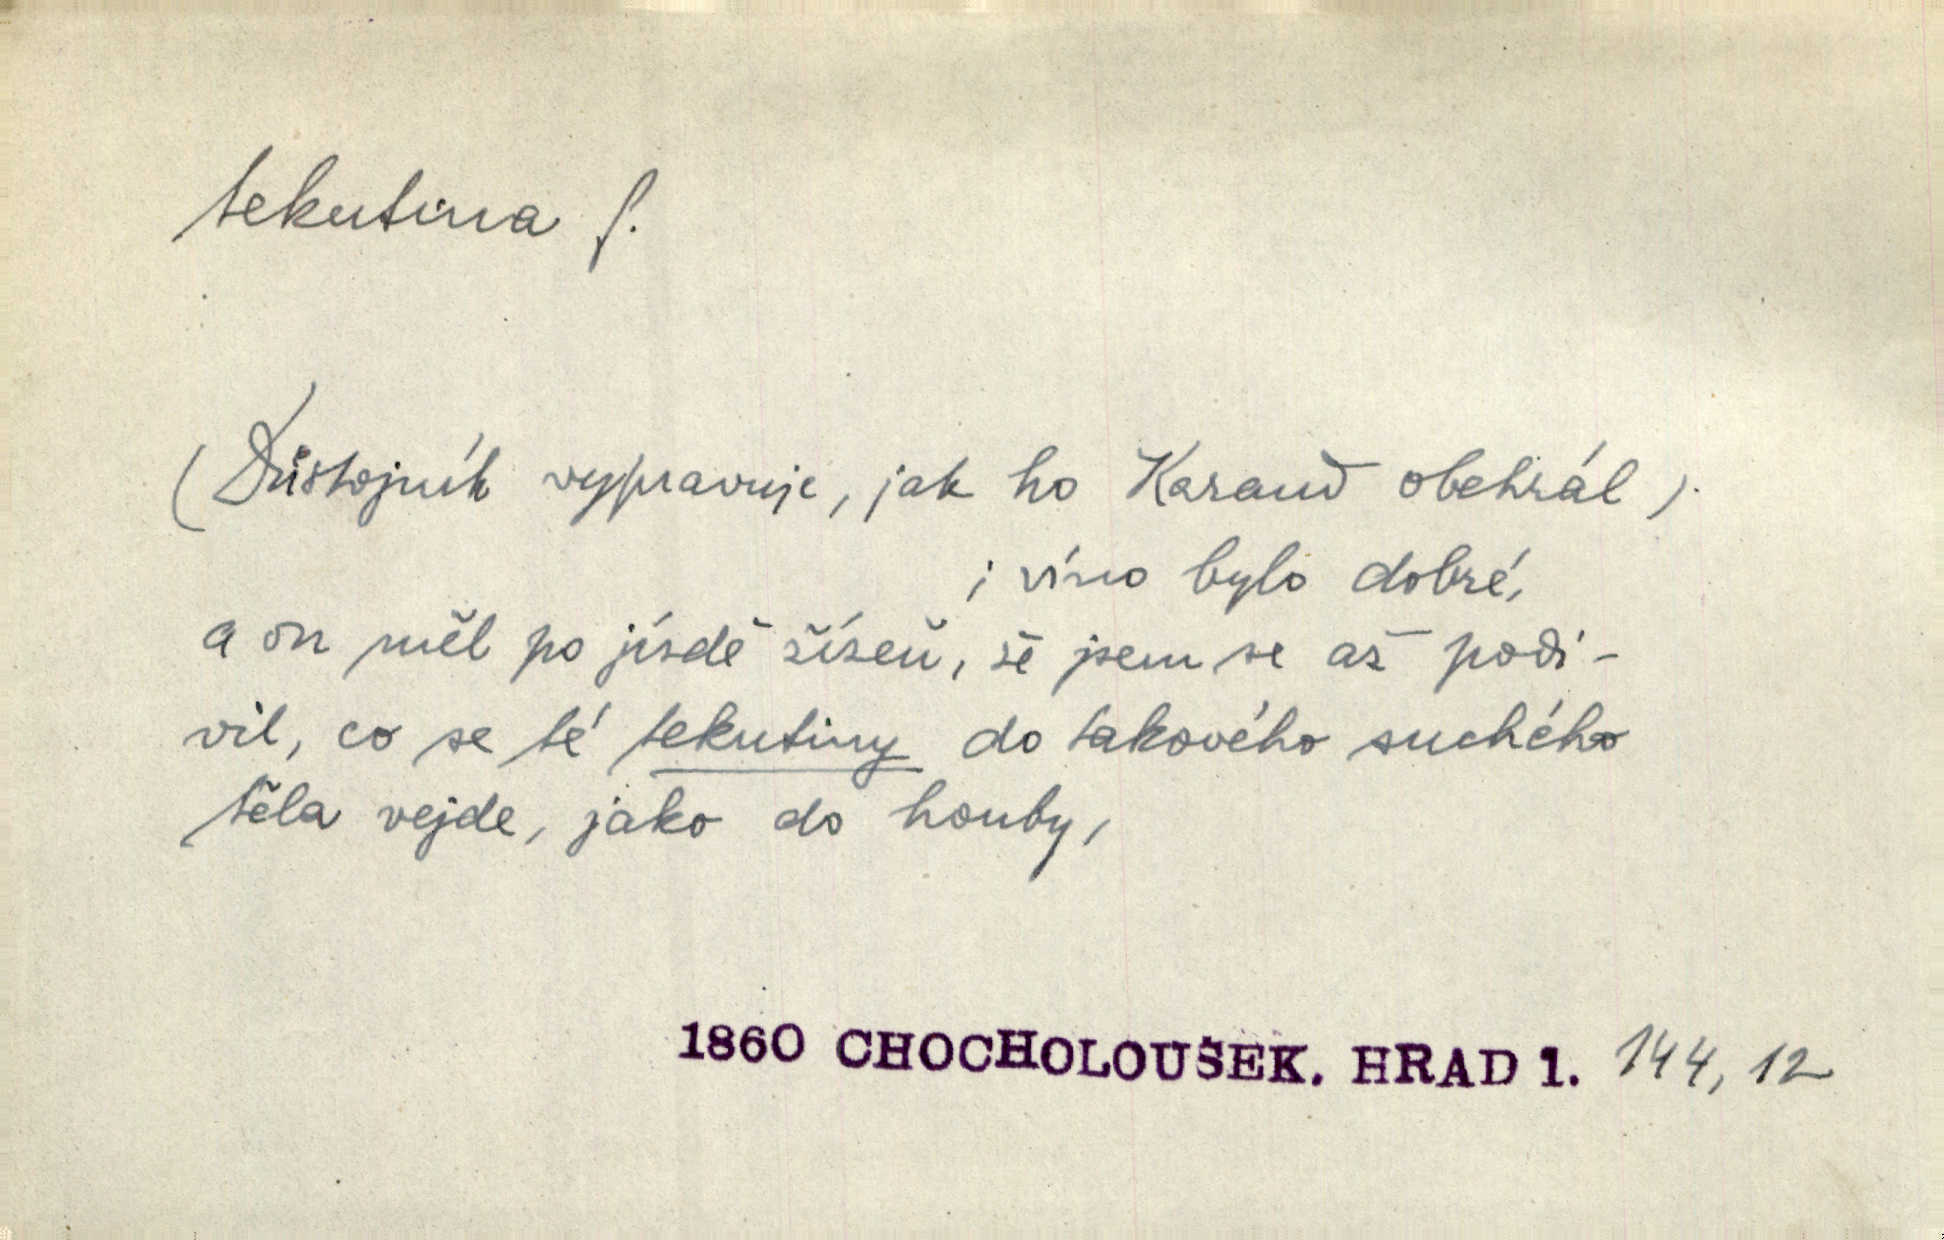 tekutina f.
(Důstojník vypravuje, jak ho Karanď obehrál).
i víno bylo dobré,
a on měl po jízdě žízeň, že jsem se až podi-
vil, co se té tekutiny do takového suchého
těla vejde, jako do houby,
1860 CHOCHOLOUŠEK. HRAD 1. 144, 12